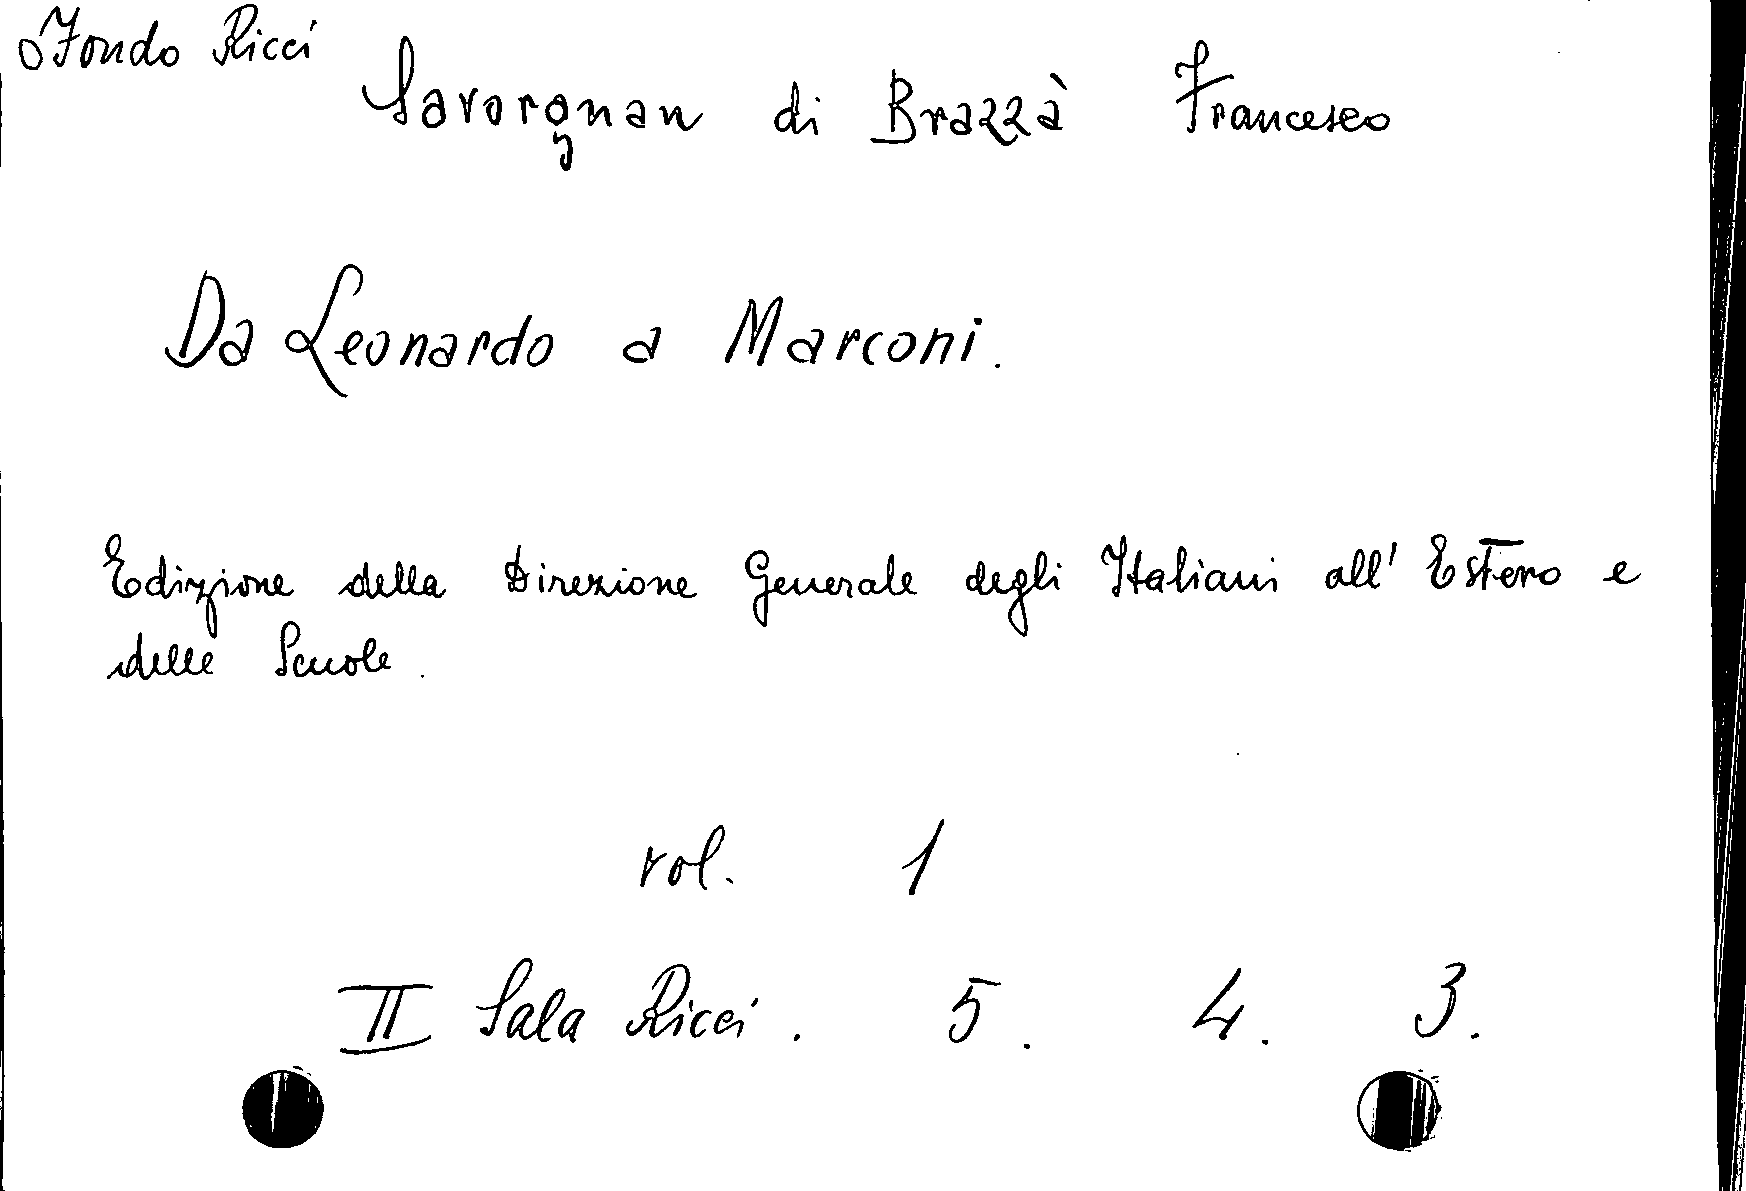 Fondo Ricci
Savorgnan di Brazzà Francesco
Da Leonardo a Marconi.
Edizione della Direzione Generale degli Italiani all' Estero e
delle Scuole.
vol. 1
II Sala Ricci. 5. 4. 3.